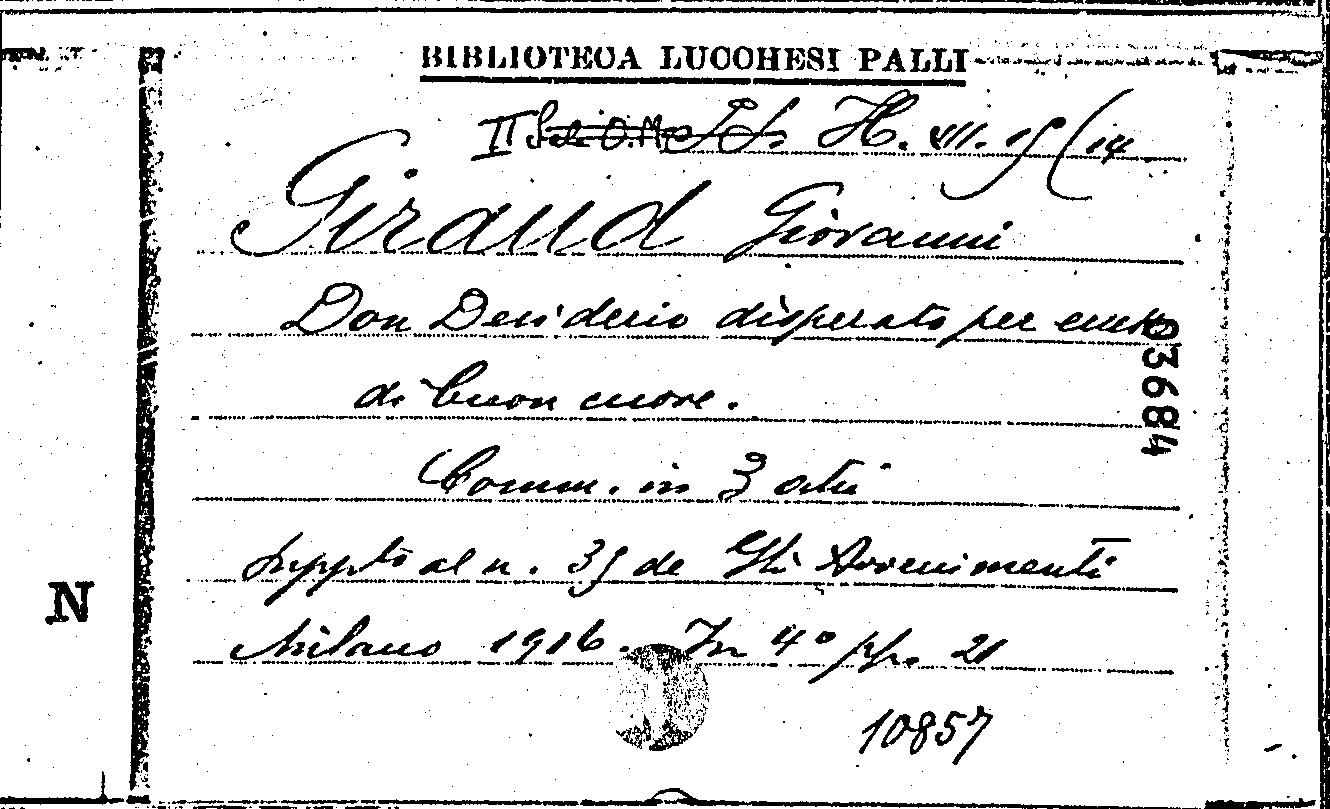 BIBLIOTECA LUCCHESI PALLI
II Sala H. VII. 15 (14
Giraud Giovanni
Don Desiderio disperato per eccesso
di buon cuore.
Comm. in 3 atti
Supplto al n. 35 de Gli Avvenimenti
Milano 1916. In 4° pp. 21
10857
03684
N